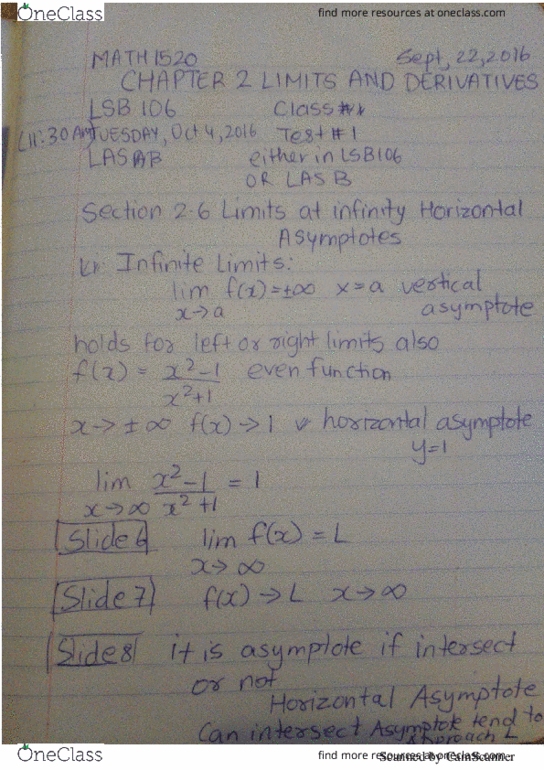 OneClass
find more resources at oneclass.com
MATH 1520 Sept, 22, 2016
CHAPTER 2 LIMITS AND DERIVATIVES
LSB 106 Class #
(11:30 AM) TUESDAY, Oct 4, 2016 Test #1
LAS B either in LSB106
OR LAS B
Section 2.6 Limits at infinity Horizontal
Asymptotes
Infinite Limits:
lim f(x) = ±∞ x=a vertical
x→a asymptote
holds for left or right limits also
f(x) = x²-1 even function
x²+1
x→ ±∞ f(x)→1 horizontal asymptote
y=1
lim x²-1 = 1
x→∞ x²+1
Slide 6 lim f(x) = L
x→∞
Slide 7 f(x)→L x→∞
Slide 8 it is asymptote if intersect
or not
Horizontal Asymptote
Can intersect Asymptote tend to
approach L
OneClass
find more resources at oneclass.com
Scanned by CamScanner